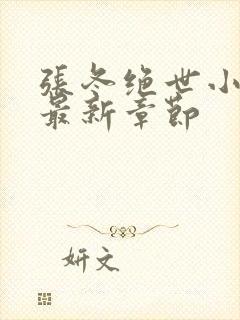 張冬绝世小
最新章節
妍文